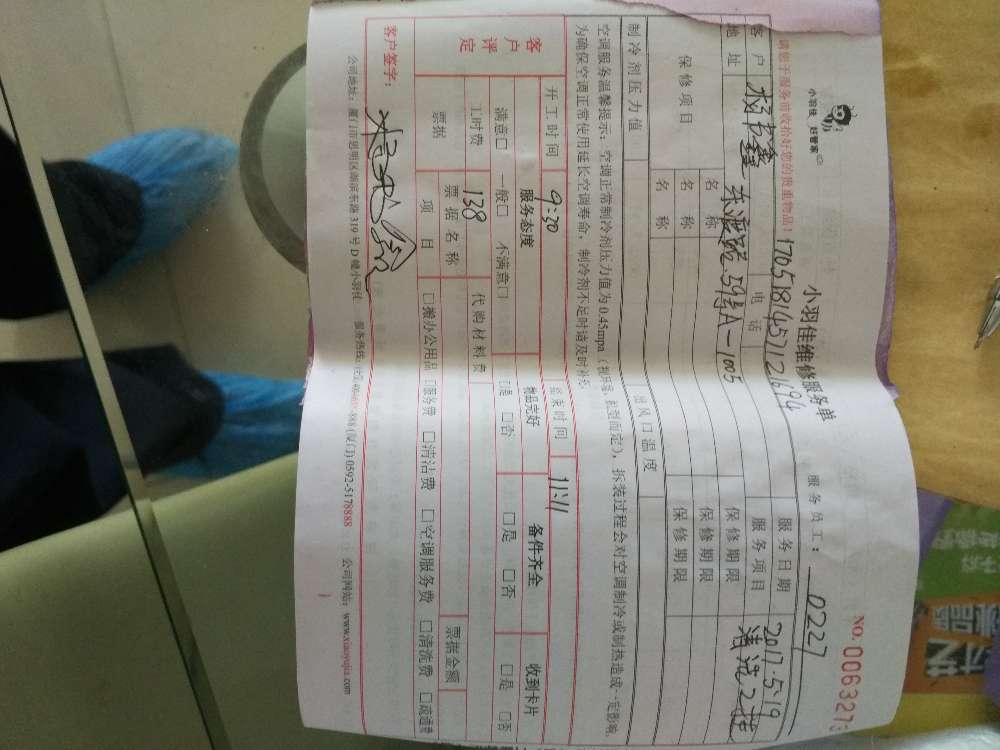 小羽佳 好管家
小羽佳维修服务单
NO.0063273
请您于服务前收拾好您的贵重物品！
服务员工： 0227
客户 电话 17051814571 21694 服务日期 2017.5.19
地址 东渡路59号A-1005 服务项目 清洗2挂
保修项目 名称 保修期限
名称 保修期限
名称 保修期限
制冷剂压力值 出风口温度
空调服务温馨提示：空调正常制冷剂压力值为0.45mpa（视环境、机型而定），拆装过程会对空调制冷或制热造成一定影响，
为确保空调正常使用延长空调寿命，制冷剂不足时请及时补充
开工时间 9:30 结束时间 11:11
客户评定 服务态度 物品完好 备件齐全 收到卡片
满意□ 一般□ 不满意□ □是 □否 □是 □否 □是 □否
工时费 138 代购材料费
票据 票据名称 票据金额
项目 □搬办公用品 □服务费 □清洁费 □空调服务费 □清洗费 □疏通费
客户签字：
公司地址：厦门市思明区湖滨东路319号D幢小羽佳 服务热线：(厦门)0592-5178888 公司网站：www.xiaoyujia.com